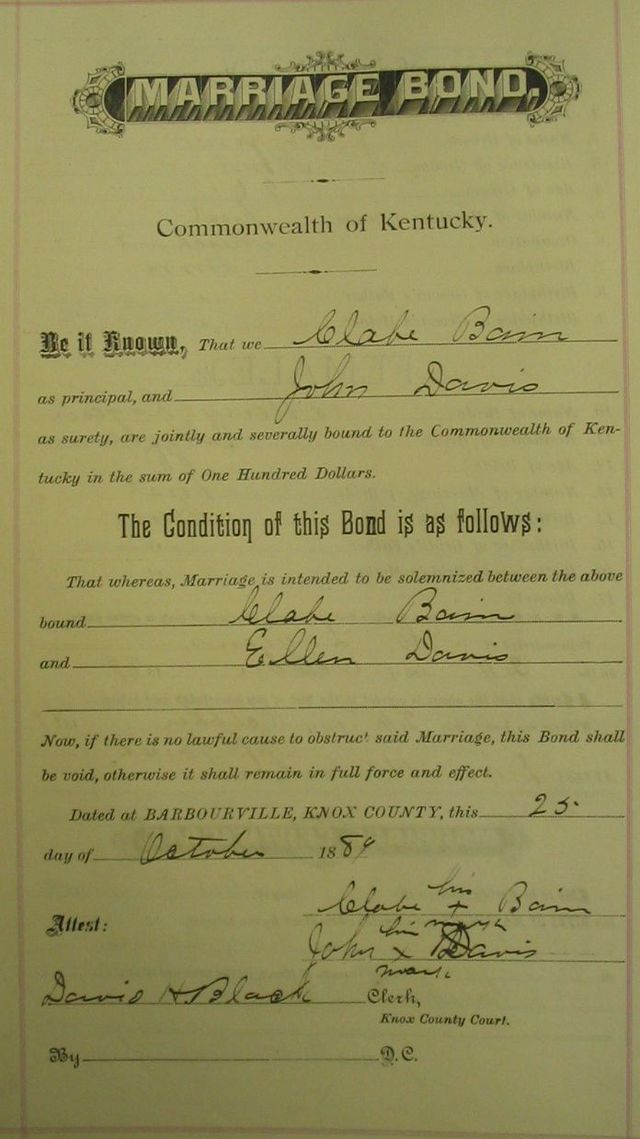 MARRIAGE BOND,
Commonwealth of Kentucky.
Be it Known, That we Clabe Bain
as principal, and John Davis
as surety, are jointly and severally bound to the Commonwealth of Ken-
tucky in the sum of One Hundred Dollars.
The Condition of this Bond is as follows:
That whereas, Marriage is intended to be solemnized between the above
bound Clabe Bain
and Ellen Davis
Now, if there is no lawful cause to obstruct said Marriage, this Bond shall
be void, otherwise it shall remain in full force and effect.
Dated at BARBOURVILLE, KNOX COUNTY, this 25.
day of October 1889
his
Clabe x Bain
mark
Attest:
his
John x Davis
mark
David H. Black Clerk,
Knox County Court.
By D.C.